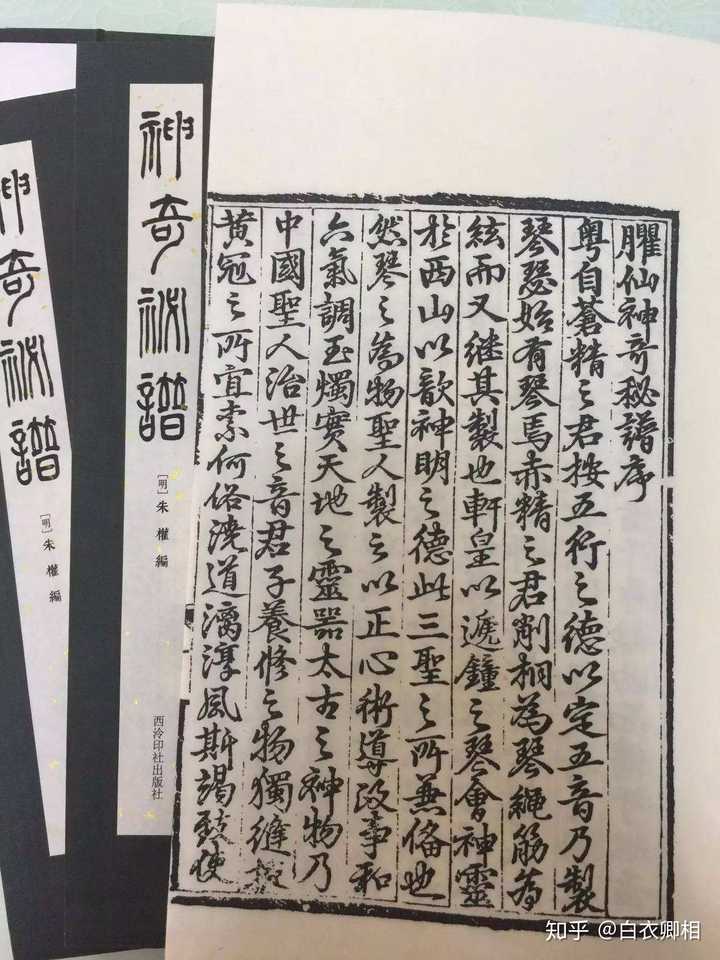 臞仙神奇秘譜序
粤自蒼精之君按五行之德以定五音乃製
琴瑟始有琴焉赤精之君削桐為琴繩筋為
絃而又継其製也軒皇以遞鐘之琴會神靈
於西山以歆神明之德此三聖之所兼俻也
然琴之為物聖人製之以正心術導政事和
六氣調玉燭實天地之靈器太古之神物乃
中國聖人治世之音君子養修之物獨縫掖
黄冠之所宜素何俗澆道漓淳風斯竭致使
神奇祕譜
[明]朱權編
西泠印社出版社
神奇祕譜
[明]朱權編
知乎 @白衣卿相